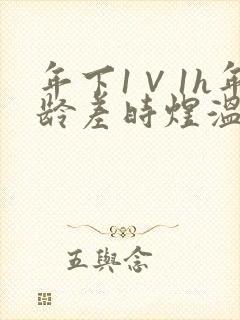 年下1V1h年
龄差时煜温
五與念